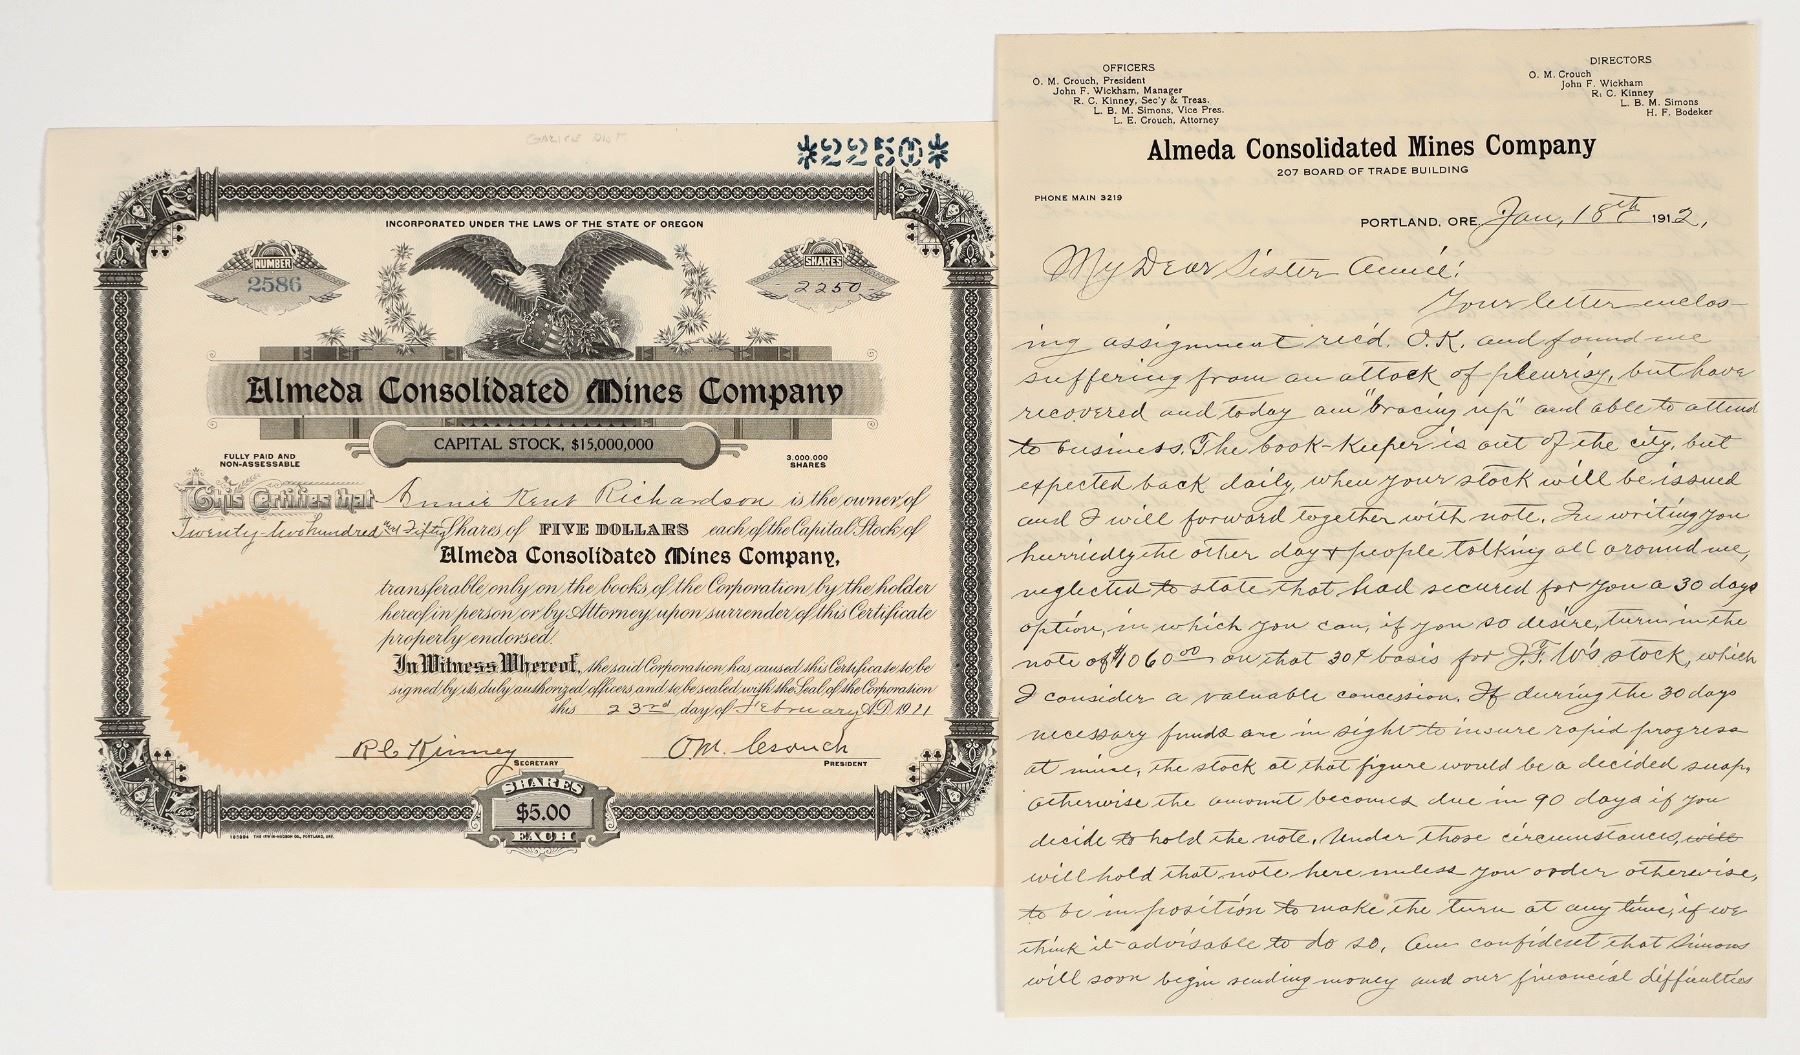 *2250*
INCORPORATED UNDER THE LAWS OF THE STATE OF OREGON
NUMBER
2586
SHARES
-2250-
Almeda Consolidated Mines Company
CAPITAL STOCK, $15,000,000
FULLY PAID AND
NON-ASSESSABLE
3,000,000
SHARES
This Certifies that Annie Kent Richardson is the owner of
Twenty-two hundred and Fifty Shares of FIVE DOLLARS each of the Capital Stock of
Almeda Consolidated Mines Company,
transferable only on the books of the Corporation by the holder
hereof in person or by Attorney upon surrender of this Certificate
properly endorsed.
In Witness Whereof, the said Corporation has caused this Certificate to be
signed by its duly authorized officers and to be sealed with the Seal of the Corporation
this 23rd day of February A.D. 1911
R C Kinney
SECRETARY
O M. Crouch
PRESIDENT
SHARES
$5.00
EACH
THE IRWIN-HODSON CO., PORTLAND, ORE.
OFFICERS
O. M. Crouch, President
John F. Wickham, Manager
R. C. Kinney, Sec'y & Treas.
L. B. M. Simons, Vice Pres.
L. E. Crouch, Attorney
DIRECTORS
O. M. Crouch
John F. Wickham
R. C. Kinney
L. B. M. Simons
H. F. Bodeker
Almeda Consolidated Mines Company
207 BOARD OF TRADE BUILDING
PHONE MAIN 3219
PORTLAND, ORE. Jan, 18th 1912,
My Dear Sister Annie:
Your letter enclos-
ing assignment rec'd. O.K. and found me
suffering from an attack of pleurisy, but have
recovered and today am "bracing up" and able to attend
to business. The book-keeper is out of the city, but
expected back daily, when your stock will be issued
and I will forward together with note. In writing you
hurriedly the other day & people talking all around me,
neglected to state that had secured for you a 30 days
option, in which you can, if you so desire, turn in the
note of $1060.00 on that 30¢ basis for J.F.W's stock, which
I consider a valuable concession. If during the 30 days
necessary funds are in sight to insure rapid progress
at mine, the stock at that figure would be a decided snap,
otherwise the amount becomes due in 90 days if you
decide to hold the note. Under those circumstances, will
will hold that note here unless you order otherwise,
to be in position to make the turn at any time, if we
think it advisable to do so. Am confident that Simons
will soon begin sending money and our financial difficulties